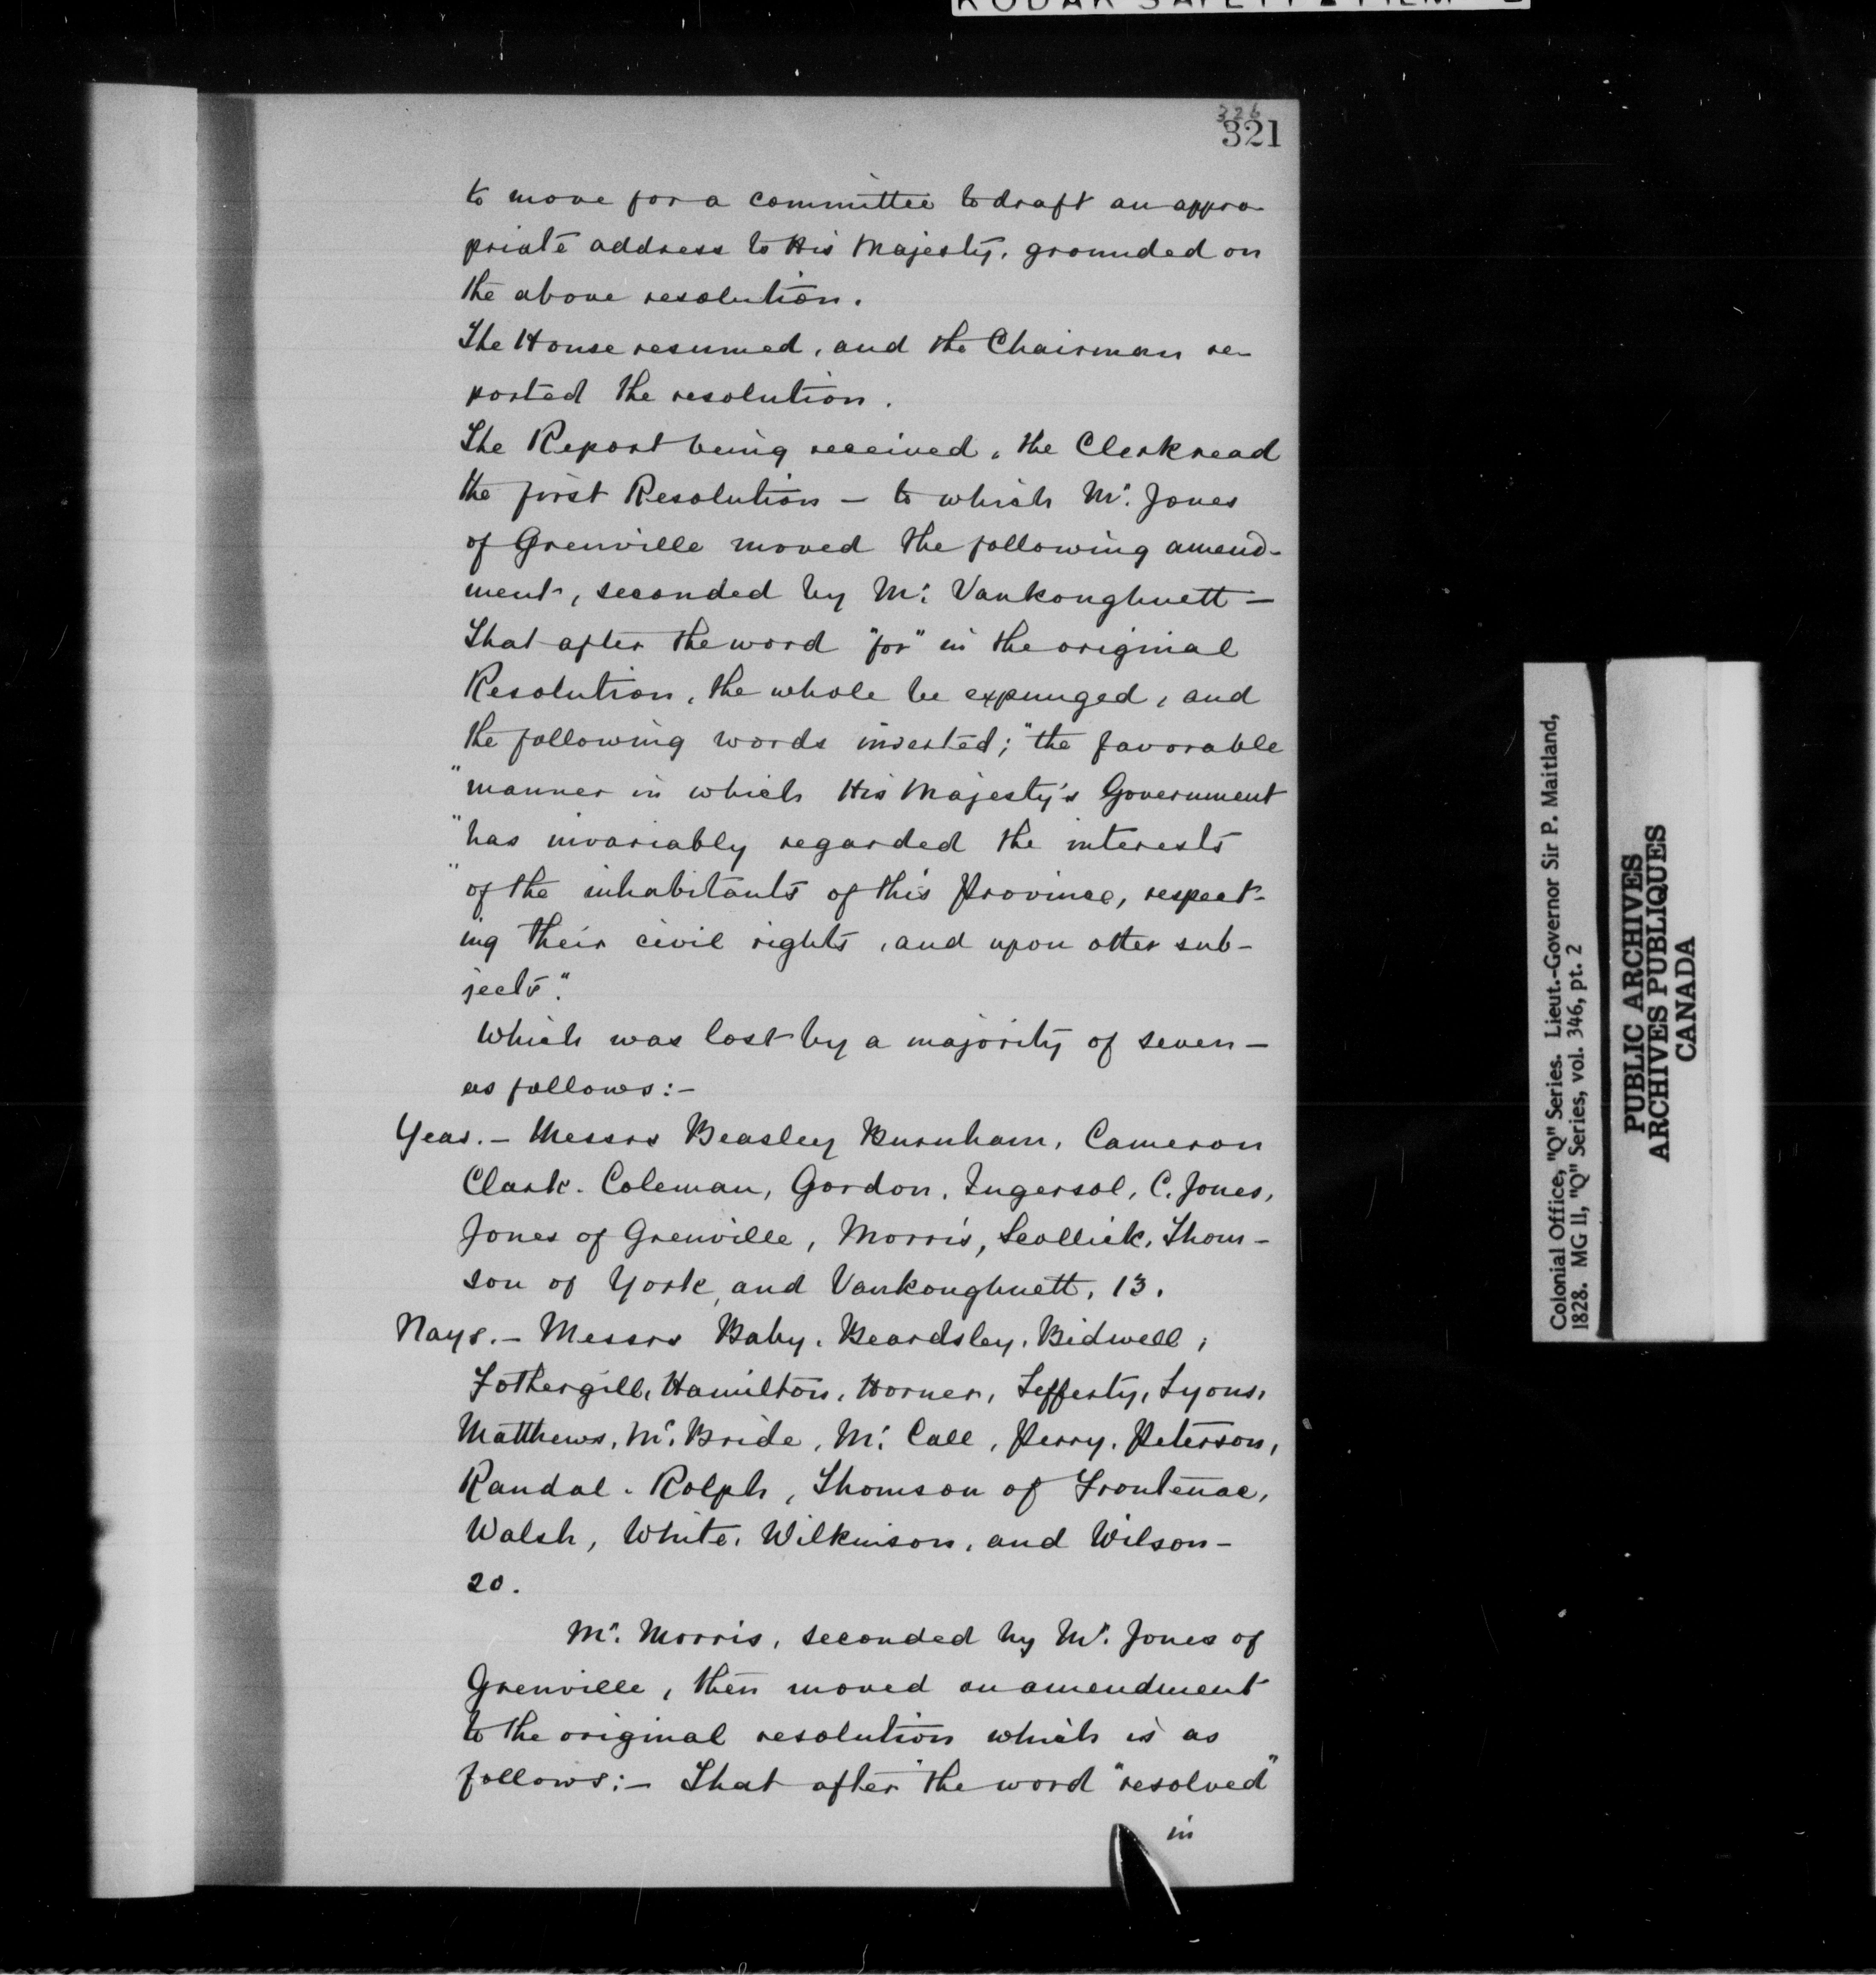 KODAK SAFETY FILM
326
321
to move for a committee to draft an appro-
priate address to His Majesty, grounded on
the above resolution.
The House resumed, and the Chairman re-
ported the resolution.
The Report being received, the Clerk read
the first Resolution - to which Mr. Jones
of Grenville moved the following amend-
ment, seconded by Mr. Vankoughnett -
That after the word "for" in the original
Resolution, the whole be expunged, and
the following words inserted; "the favorable
"manner in which His Majesty's Government
"has invariably regarded the interests
"of the inhabitants of this Province, respect-
ing their civil rights, and upon other sub-
jects."
Which was lost by a majority of seven -
as follows:-
Yeas. - Messrs Beasley Burnham, Cameron
Clark. Coleman, Gordon, Ingersol, C. Jones,
Jones of Grenville, Morris, Scollick, Thom-
son of York, and Vankoughnett, 13.
Nays. - Messrs Baby, Beardsley, Bidwell,
Fothergill, Hamilton, Horner, Lefferty, Lyons,
Matthews, Mc. Bride, Mc. Call, Perry, Peterson,
Randal. Rolph, Thomson of Frontenac,
Walsh, White, Wilkinson, and Wilson -
20.
Mr. Morris, seconded by Mr. Jones of
Grenville, then moved an amendment
to the original resolution which is as
follows:- That after the word "resolved"
in
Colonial Office, "Q" Series. Lieut.-Governor Sir P. Maitland,
1828. MG 11, "Q" Series, vol. 346, pt. 2
PUBLIC ARCHIVES
ARCHIVES PUBLIQUES
CANADA